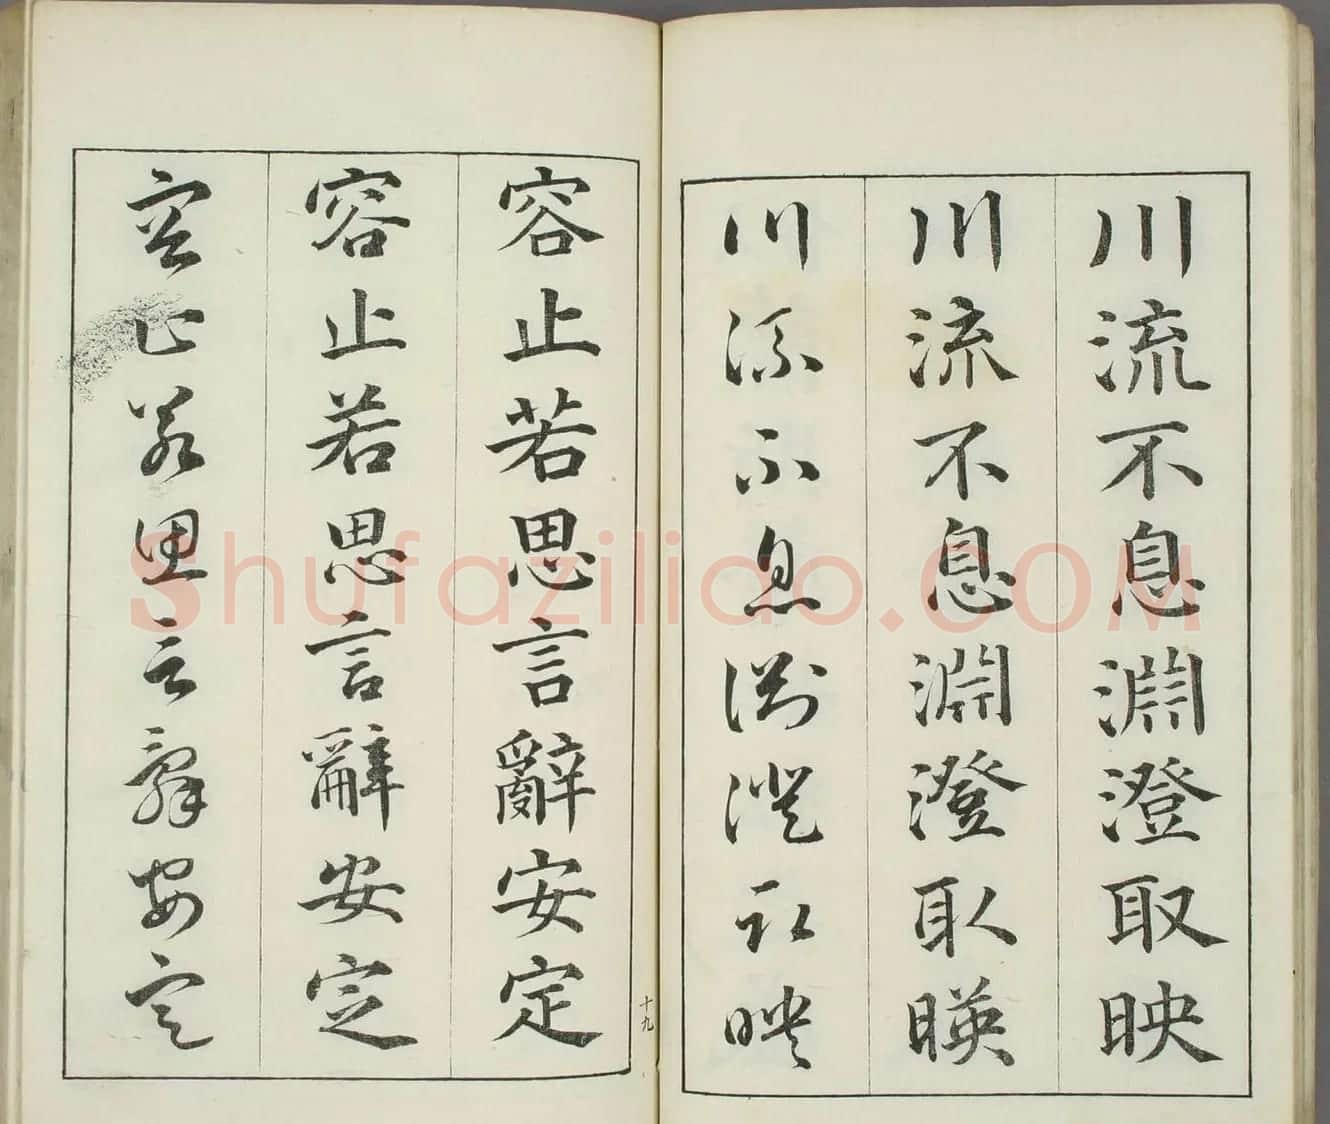 川流不息淵澄取映
川流不息淵澄取暎
川流不息渕澄取映
容止若思言辭安定
容止若思言辭安定
容止若思言辞安定
十九
Shufaziliao.COM